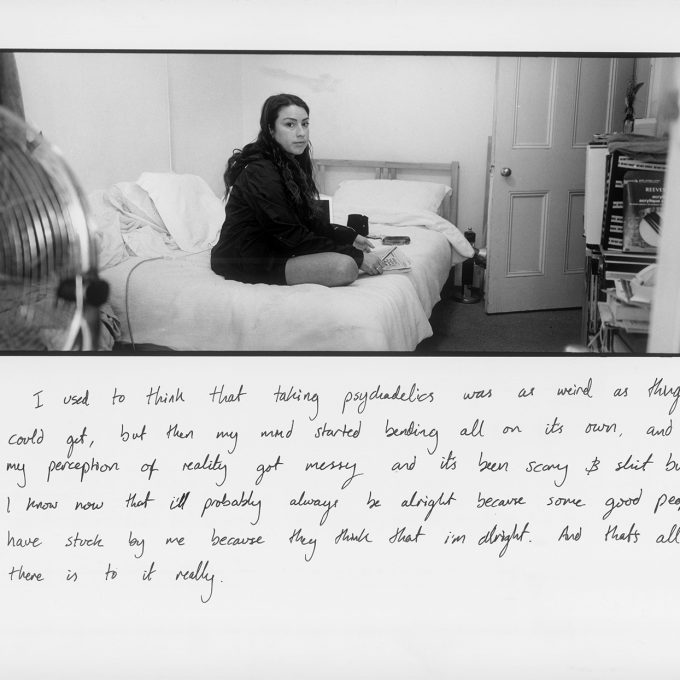 REEVES
I used to think that taking psychadelics was as weird as thing
could get, but then my mind started bending all on its own, and
my perception of reality got messy and it's been scary & shit bu
I know now that i'll probably always be alright because some good peop
have stuck by me because they think that i'm alright. And thats all
there is to it really.